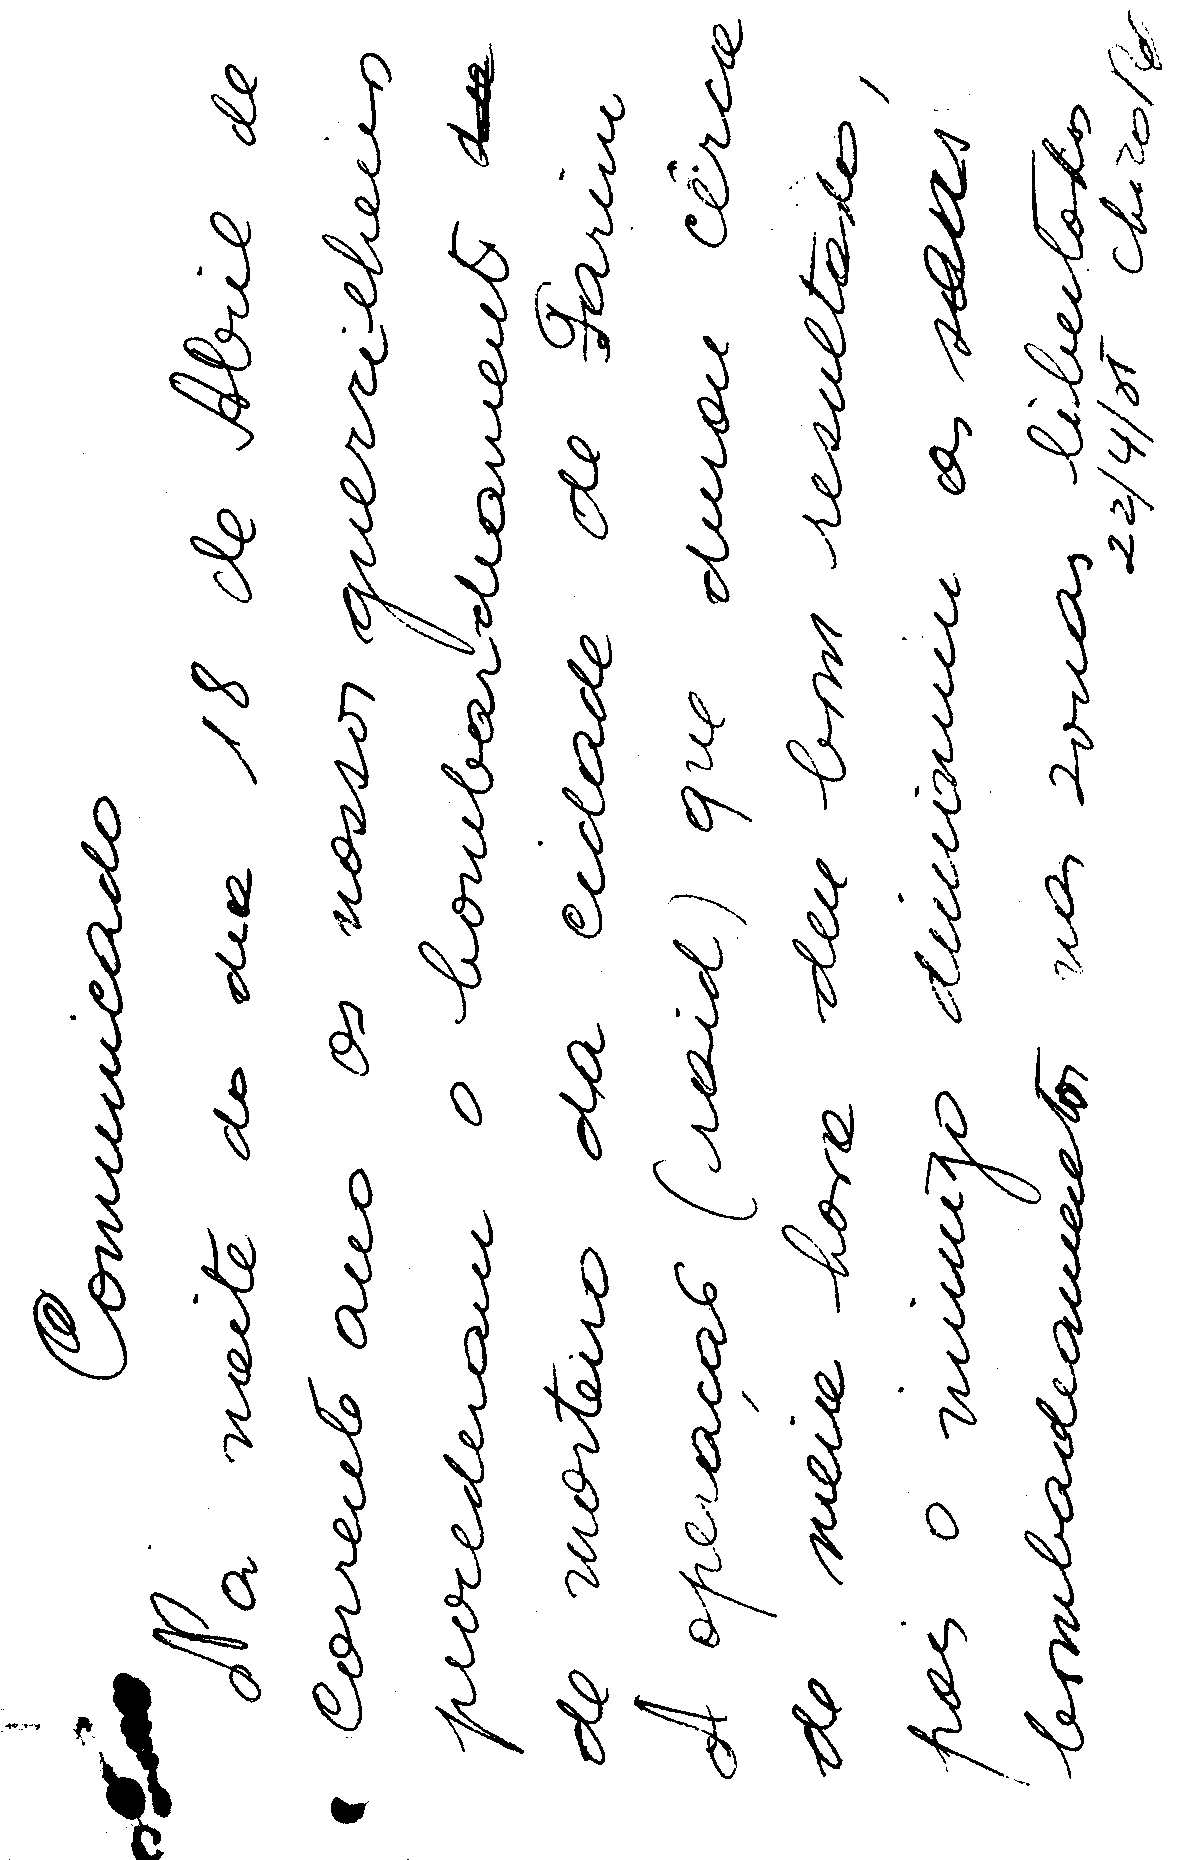 Comunicado
Na noite do dia 18 de Abril de
corrente ano os nossos guerrilheiros
procederam o bombardeamento
de morteiro da cidade de Farim
A operação (raid) que durou cêrca
de meia hora deu bom resultado,
pois o inimigo diminuiu os seus
bombadeamentos nas zonas libertadas
22/4/